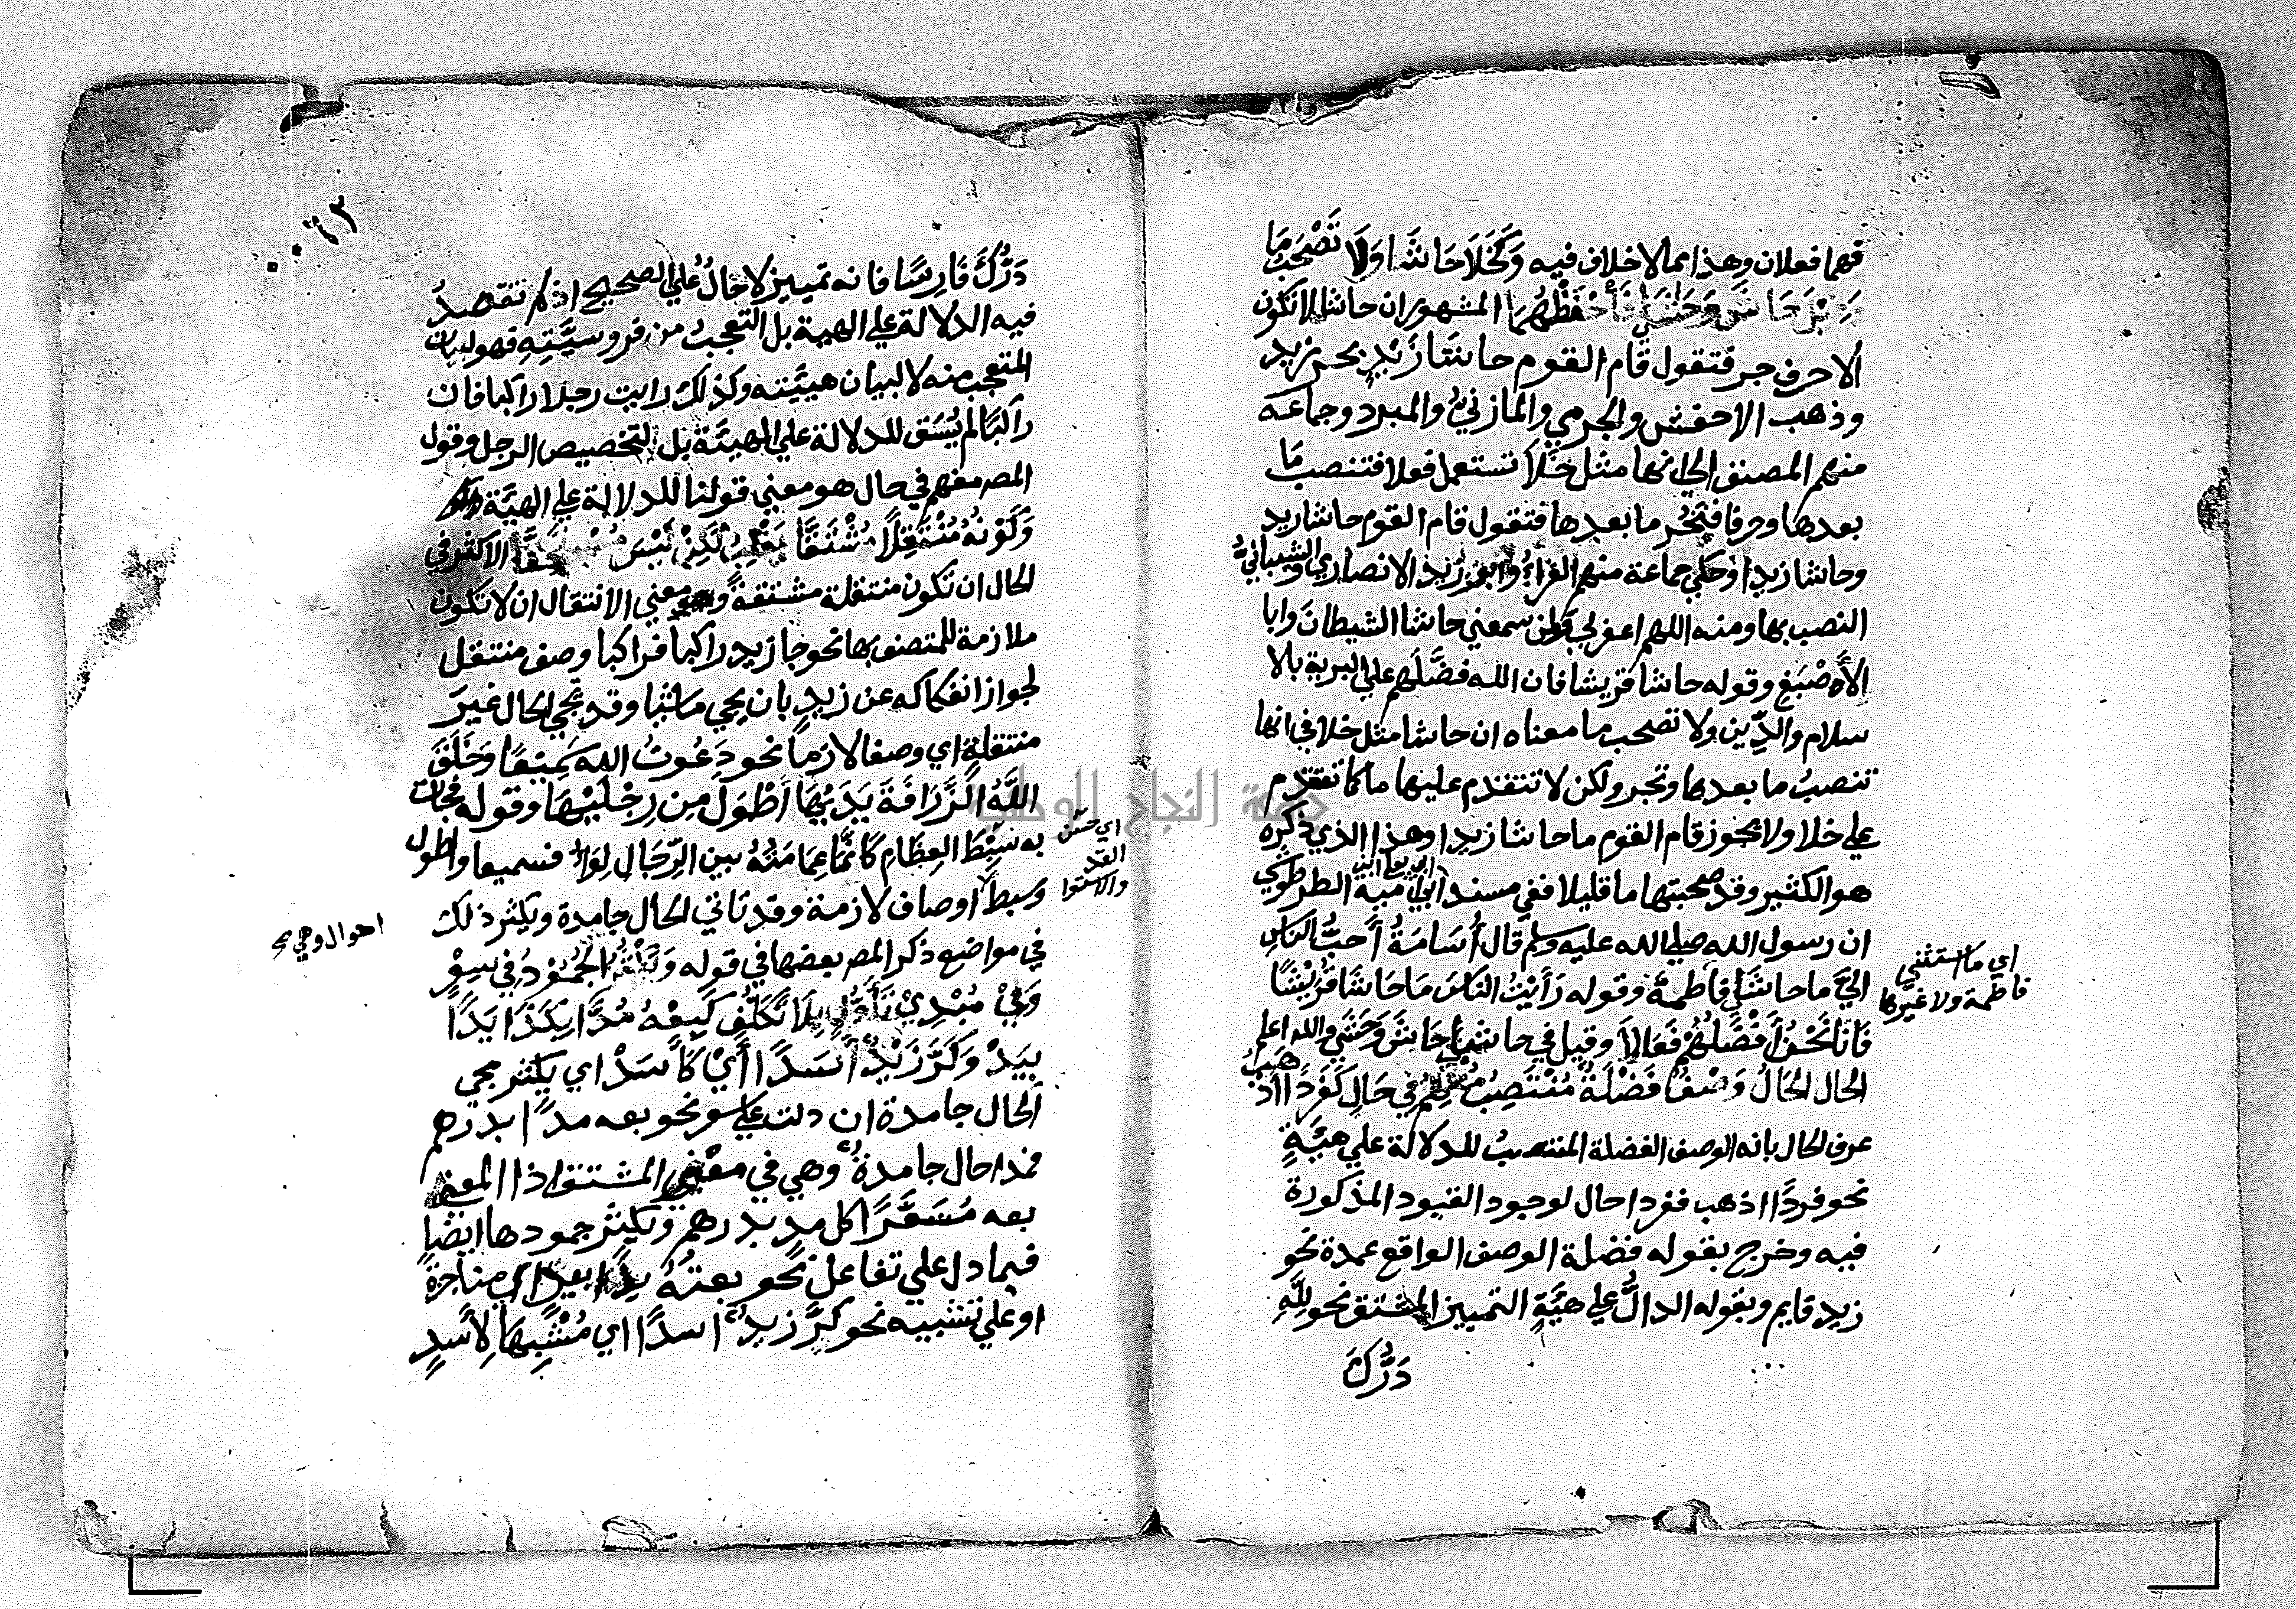 فهما فعلان وهذا مما لا خلاف فيه وَكَخَلَا حَاشَا وَلَا تَصْحَبُ مَا
وَقِيلَ حَاشَ وَحَشَا فَاحْفَظْهُمَا المشهوران حاشا لا تكون
الا حرف جر فتقول قام القوم حاشا زَيْدٍ بجر زيد
وذهب الاخفش والجرمي والمازنيُّ والمبرد وجماعة
منهم المصنف الي انها مثل خَلَا تستعمل فعلا فتنصب مَا
بعدها وحرفا فتجُر ما بعدها فتقول قام القوم حاشا زيد
وحاشا زيدا وحكي جماعة منهم الفراءُ وابو زيد الانصاري والشيبانيُّ
النصب بها ومنه اللهم اغفر لي ولمن سمعني حاشا الشيطانَ وابا
الأصْبَغِ وقوله حاشا قريشا فان الله فضَّلَهم علي البرية بالا
سلام والدِّين ولا تصحب ما معناه ان حاشا مثل خلا في انها
تنصبُ ما بعدها وتجر ولكن لا تتقدم عليها ما كما تتقدم
علي خلا ولا يجوز قام القوم ما حاشا زيدا وهذا الذي ذكره
هو الكثير وقد صحبتها ما قليلا ففي مسند ابي امية الطرطوسي
ان رسول الله صلي الله عليه وسلم قال أُسَامَةُ أَحَبُّ الناسِ
اليَّ ما حاشَا فاطمةَ وقوله رَأَيْتُ الناسَ مَا حَاشَا قُرَيْشًا
فَانَّا نَحْنُ أَفْضَلُهُمْ فَعَالَا وقيل في حاشا حَاشَ وَحَشَي والله اعلم
الحال الحَالُ وَصْفٌ فَضْلَةٌ مُنْتَصِبُ مُفْهِمُ فِي حَالِ كَفَرْدًا أَذْهَبُ
عرف الحال بانه الوصف الفضلة المنتصبُ للدلالة علي هيَّةٍ
نحو فردًا اذهب ففردا حال لوجود القيود المذكورة
فيه وخرج بقوله فضلة الوصف الواقع عمدة نحو
زيد قايم وبقوله الدالُّ علي هيَّةٍ التمييز المشتق نحو لِلَّهِ
دَرُّكَ
اي ما استثني
فاطمة ولا غيرها
٦٣
دَرُّكَ فَارِسًا فانه تمييز لا حالٌ علي الصحيح اذ لم تقصد
فيه الدلالة علي الهية بل التعجبُ من فروسيَّتِهِ فهو لبيان
المتعجب منه لا لبيان هيئته وكذلك رايت رجلا راكبا فان
راكبًا لم يُسَق للدلالة علي الهيئة بل لتخصيص الرجل وقول
المصـ مفهم في حال هو معني قولنا للدلالة علي الهيَّة
وَكَوْنُهُ مُنْتَقِلًا مُشْتَقَّا يَغْلِبُ لَكِنْ لَيْسَ مُسْتَحَقَّا الاكثر في
الحال ان تكون منتقلة مشتقةً ومعني الانتقال ان لا تكون
ملازمة للمتصف بها نحو جا زيد راكبا فراكبا وصف منتقل
لجواز انفكاكه عن زيدٍ بان يجي ماشيا وقد تجي الحال غيرَ
منتقلةٍ اي وصفا لازمًا نحو دَعَوْتُ اللهَ سَمِيْعًا وَخَلَقَ
اللَّهُ الزَّرَافَةَ يَدَيْهَا أَطْوَلَ مِن رِجْلَيْهَا وقوله فجات
به سَبِطَ العِظَامِ كَانَّمَا عِمَامَتُهُ بين الرِّجَالِ لِوَاءُ فسميعا واطول
وسبطَ اوصاف لازمة وقد تاتي الحال جامدة ويكثر ذلك
في مواضع ذكر المصـ بعضها في قوله وَيَكْثُرُ الجُمُوْدُ في سِعْرٍ
وَفِيْ مُبْدِيْ تَأَوُّلٍ بِلَا تَكَلُّفِ كَبِعْهُ مُدًّا بِكَذَا يَدًا
بِيَدْ وَكَرَّ زَيْدٌ أَسَدًا أَيْ كَأَسَدْ اي يكثر مجي
الحال جامدة ان دلت علي سعر نحو بعه مدًّا بدرهم
فمدا حال جامدةٌ وهي في معْنَي المشتق اذ المعني
بعه مُسَعَّرًا كل مد بدرهم ويكثر جمودها ايضًا
فيما دل علي تفاعل نحو بعتُهُ يدًا بيدٍ اي مناجزةً
او علي تشبيه نحو كرَّ زيدٌ اسدًا اي مُشْبِهًا لِأَسَدٍ
اي حسن
القد
والاستوا
احوال وهي
جامعة النجاح الوطنية